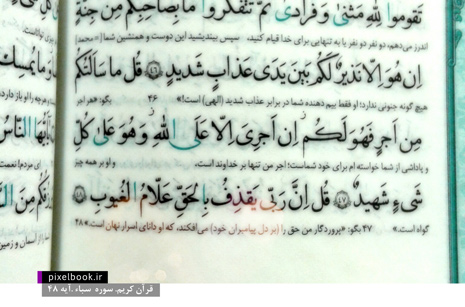 تَقومُوا لِلّٰهِ مَثنىٰ وَ فُرادىٰ ثُمَّ تَتَفَكَّروا ما بِصاحِبِكُم مِن جِنَّةٍ
اندرز می‌دهم، دو نفر دو نفر یا به تنهایی برای خدا قیام کنید، سپس بیندیشید این دوست و همنشین شما [= محمد]
اِن هُوَ اِلّا نَذيرٌ لَكُم بَينَ يَدَى عَذابٍ شَديدٍ ﴿٤٦﴾ قُل ما سَاَلتُكُم
هیچ گونه جنونی ندارد؛ او فقط بیم دهنده شما در برابر عذاب شدید (الهی) است!» ۴۶ بگو: «هر اجر
مِن اَجرٍ فَهُوَ لَكُم اِن اَجرِىَ اِلّا عَلَى اللّٰهِ وَ هُوَ عَلىٰ كُلِّ
و پاداشی از شما خواسته ام برای خود شماست؛ اجر من تنها بر خداوند است، و او بر همه چیز
شَىءٍ شَهيدٌ ﴿٤٧﴾ قُل اِنَّ رَبّى يَقذِفُ بِالحَقِّ عَلّامُ الغُيوبِ ﴿٤٨﴾
گواه است.» ۴۷ بگو: «پروردگار من حق را (بر دل پیامبران خود) می‌افکند، که او دانای اسرار نهان است.» ۴۸
pixelbook.ir
قرآن کریم. سوره سباء. آیه ۴۸